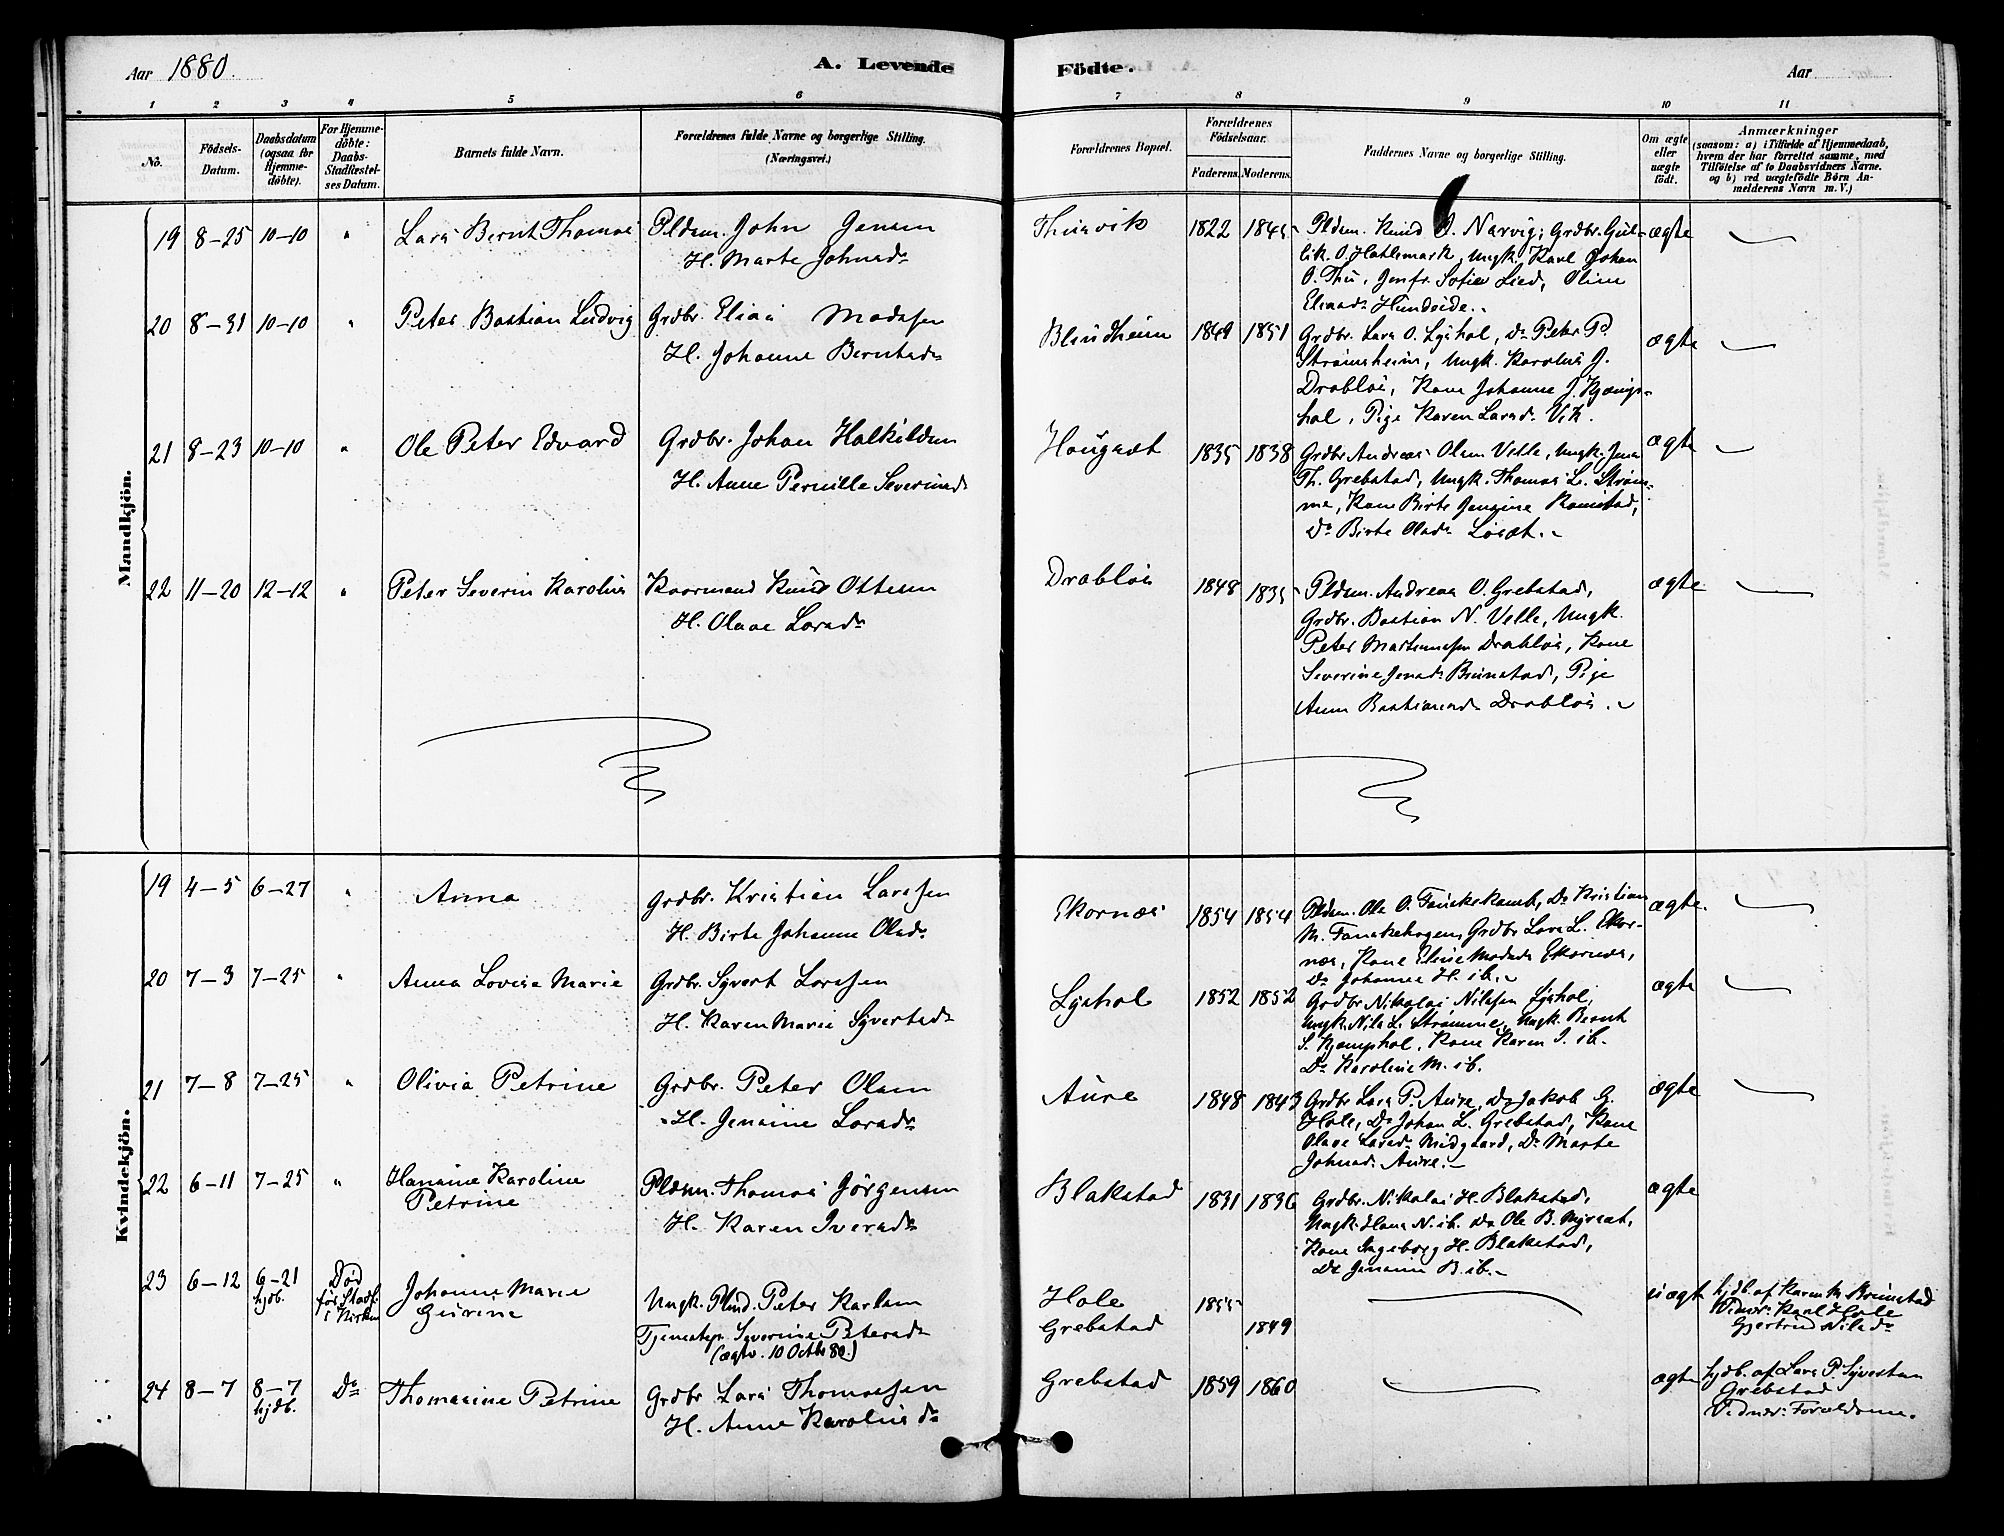 Aar 1880.
A. Levende
Födte.
Aar
1 2 3 4 5 6 7 8 9 10 11
No.
Födsels-
Datum.
Daabsdatum
(ogsaa for
Hjemme-
döbte).
For Hjemme-
döbte:
Daabs-
Stadfæstel-
ses Datum.
Barnets fulde Navn.
Forældrenes fulde Navne og borgerlige Stilling.
(Næringsvei.)
Forældrenes Bopæl.
Forældrenes
Födselsaar.
Faderens. Moderens.
Faddernes Navne og borgerlige Stilling.
Om ægte
eller
uægte
födt.
Anmærkninger
(saasom: a) i Tilfælde af Hjemmedaab,
hvem der har forrettet samme, med
Tilföielse af to Daabsvidners Navne.
og b) ved uægtefödte Börn An-
melderens Navn m. V.)
Mandkjön.
19 8-25 10-10 " Lars Bernt Thomas
Pldsm. John Jensen
H. Marte Johnsdr
Thusvik 1822 1845
Pldsm. Knud O. Narvig; Grdbr. Gul-
lik O. Hatlemark, Ungk. Karl Johan
O. Thu, Jomfr. Sofie Lied, Oline
Eliasdr Hundeide.
ægte
20 8-31 10-10 " Peter Bastian Ludvig
Grdbr. Elias Madssen
H. Johanne Berntsdr
Blindheim 1849 1851
Grdbr. Lars O. Lyshol, Do Peter P.
Strømsheim, Ungk. Karolus J.
Drabløs, Kone Johanne J. Kjæmps-
hol, Pige Karen Larsdr Vik.
ægte
21 8-23 10-10 " Ole Peter Edvard
Grdbr. Johan Halkildsen
H. Anne Pernille Severinsdr
Hougset 1835 1838
Grdbr Andreas Olsen Velle, Ungk. Jens
Th. Grebstad, Ungk. Thomas L. Strøm-
me, Kone Birte Jensine Ramstad,
Do Birte Olsdr Løset.
ægte
22 11-20 12-12 " Peter Severin Karolus
Kaarmand Knud Ottesen
H. Olave Larsdr
Drabløs 1848 1835
Pldsm. Andreas O. Grebstad,
Grdbr. Bastian N. Velle, Ungk.
Peter Martinussen Drabløs, Kone
Severine Jensdr Brunstad, Pige
Anne Bastiansdr Drabløs.
ægte
Kvindekjön.
19 4-5 6-27 " Anna
Grdbr. Kristian Larssen
H. Birte Johanne Olsdr
Ekornæs 1854 1854
Pldsm. Ole O. Fauskekamb, Do Kristian
M. Fauskehagen, Grdbr Lars L. Ekor-
næs, Kone Eline Madsdr Ekornæs,
Do Johanne H. ib.
ægte.
20 7-3 7-25 " Anna Lovise Marie
Grdbr. Syvert Larssen
H. Karen Marie Syvertsdr
Lyshol 1852 1852
Grdbr Nikolai Nilssen Lyshol,
Ungk. Nils L. Strømme, Ungk. Bernt
S. Kjæmphol, Kone Karen I. ib.
Do Karoline M. ib.
ægte
21 7-8 7-25 " Olivia Petrine
Grdbr. Peter Olsen
H. Jensine Larsdr
Aure 1848 1843
Grdbr Lars P. Aure, Do Jakob G.
Hole, Do Johan L. Grebstad, Kone
Olave Larsdr Midgaard, Do Marte
Johnsdr Aure.
ægte
22 6-11 7-25 " Hansine Karoline
Petrine
Pldsm. Thomas Jörgensen
H. Karen Iversdr
Blakstad 1831 1836
Grdbr. Nikolai H. Blakstad,
Ungk. Hans N. ib. Do Ole B. Myrset,
Kone Ingeborg H. Blakstad,
Do Jensine B. ib.
ægte
23 6-12 6-21
hjdb.
Död
før Stadf.
i Kirken
Johanne Marie
Gurine
Ungk. Plmd. Peter Karlsen
Tjenestep. Syverine Petersdr
(ægtv. 10 Octbr 80.)
Hole 1855
Grebstad 1849
uægte
hjdb. af Karen M. Brunstad
Vidner: Karl Hole
Gjertrud Nilsdr
24 8-7 8-7
hjdb.
Do
Thomasine Petrine
Grdbr Lars Thomassen
H. Anne Karolusdr
Grebstad 1859 1860
ægte
hjdb. af Lars P. Syvertsen
Grebstad
Vidner: Forældrene.